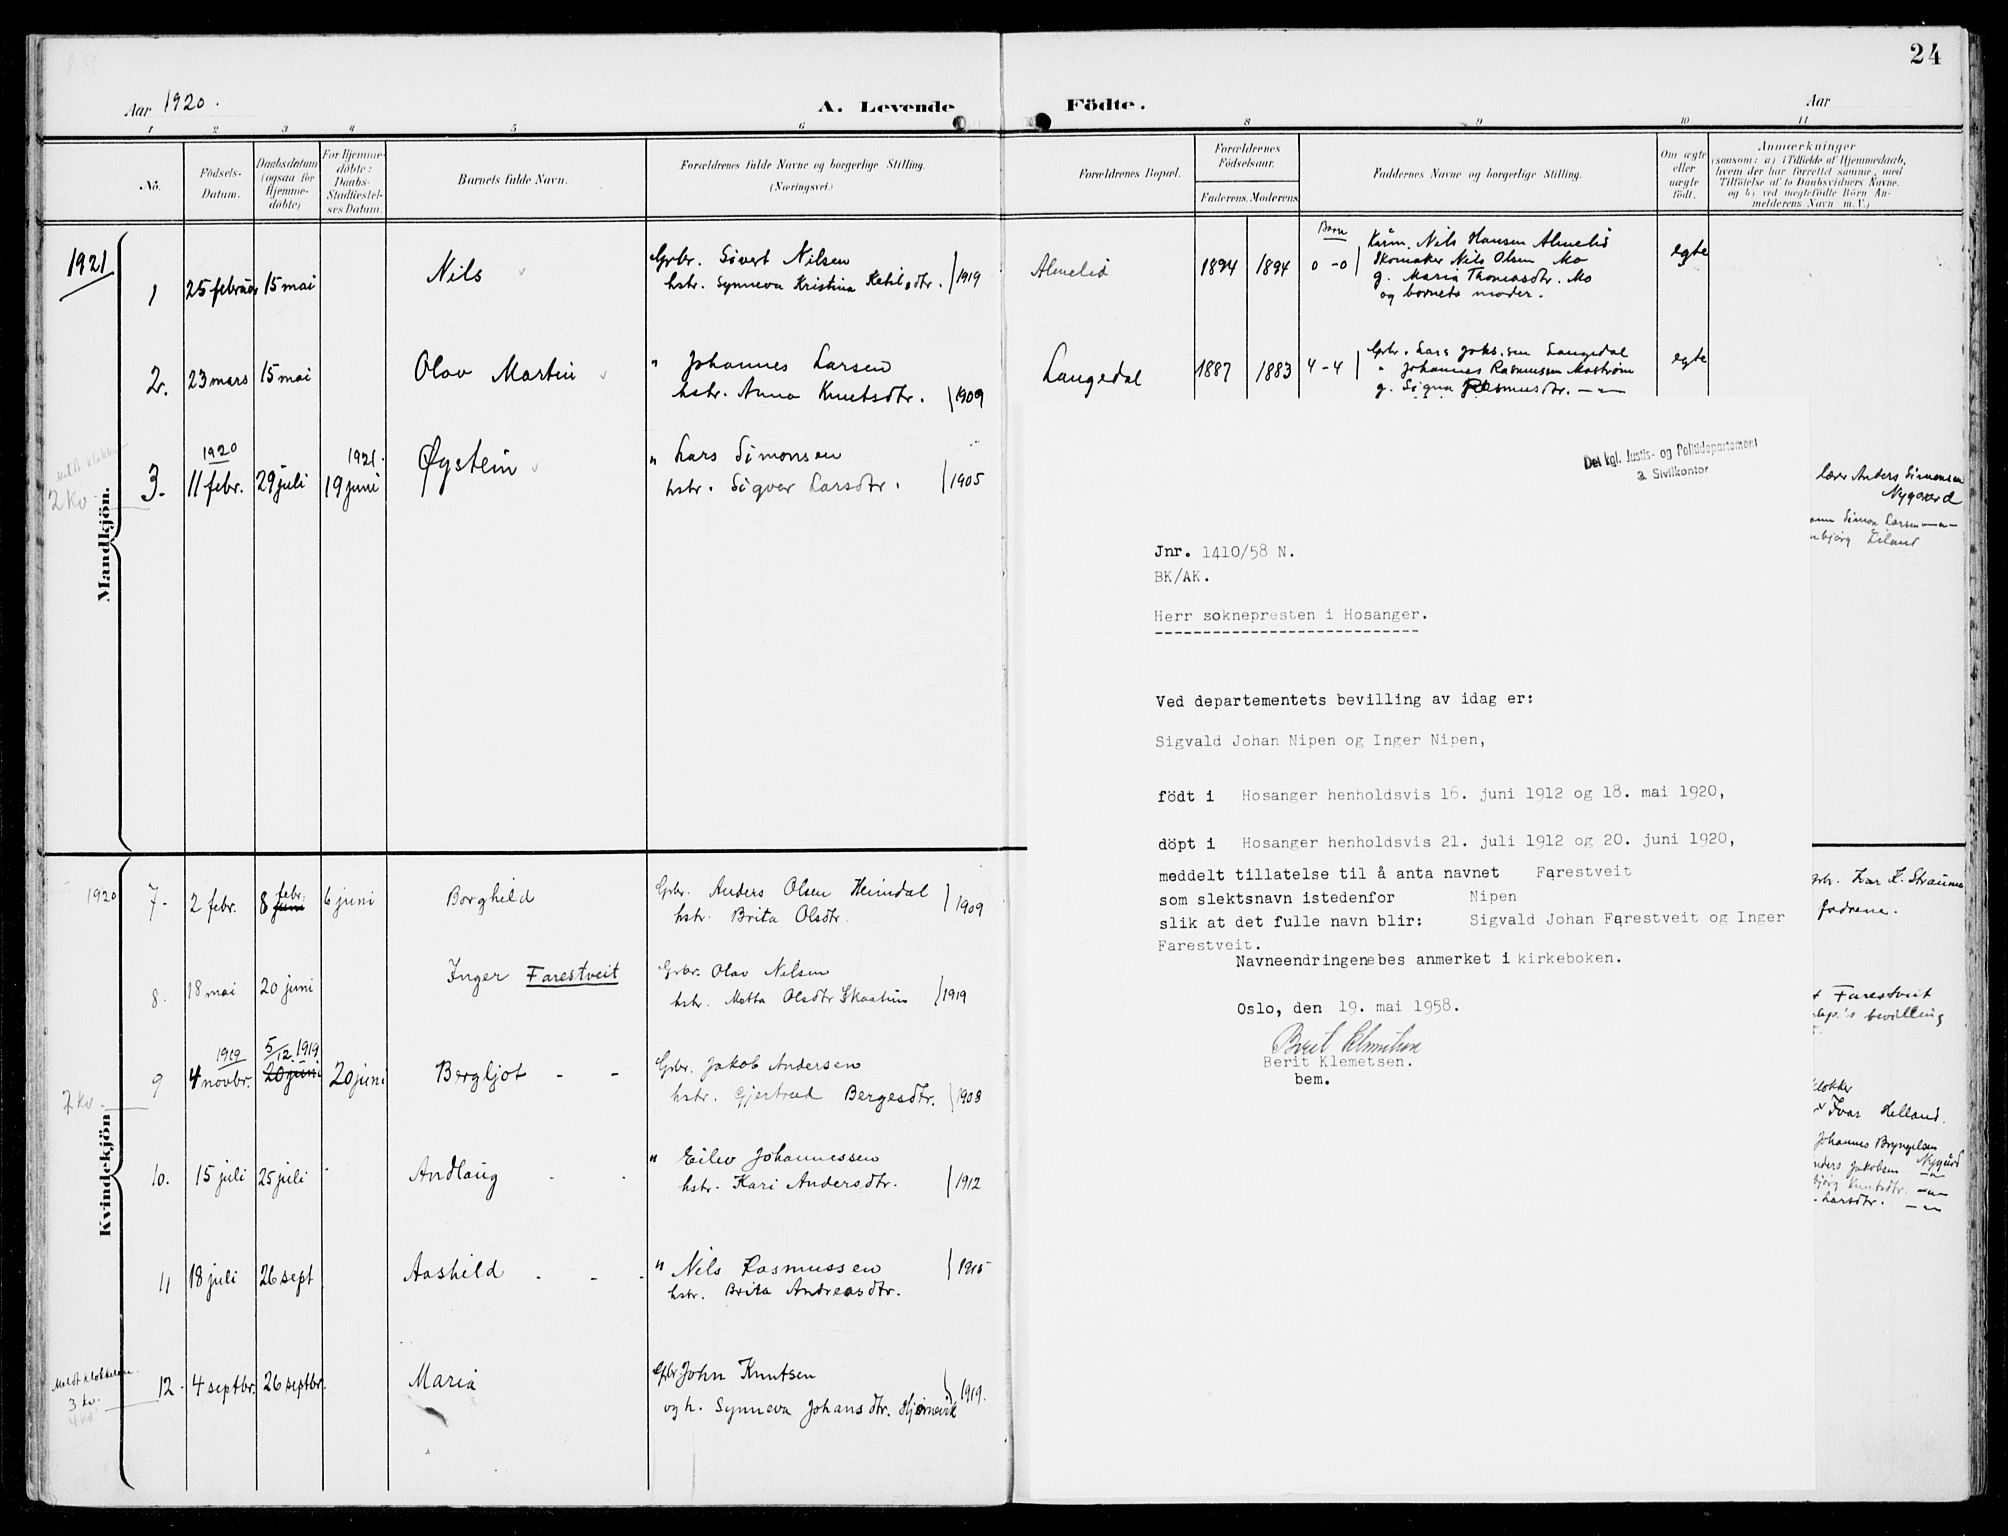 24
Aar 1920.
A. Levende Födte.
Aar
1 2 3 4 5 6 8 9 10 11
No.
Födsels-
Datum.
Daabsdatum
(ogsaa for
Hjemme-
døbte)
For Hjemme-
döbte:
Daabs-
Stadfæstel-
ses Datum.
Barnets fulde Navn.
Forældrenes fulde Navne og borgerlige Stilling.
(Næringsvei.)
Forældrenes Bopæl.
Forældrenes
Födselsaar.
Faderens. Moderens.
Faddernes Navne og borgerlige Stilling.
Om ægte
eller
uægte
født.
Anmærkninger
(saasom: a) i Tilfælde af Hjemmedaab,
hvem der har forrettet samme, med
Tilföielse af to Daabsvidners Navne.
og b) ved uægtefödte Börn An-
melderens Navn m. V.)
1921
Mandkjön.
1 25 februar 15 mai Nils Grbr. Sivert Nilsen
hstr. Synneva Kristina Ketilsdtr. 1919
Almelid 1894 1894 Børn 0 - 0
Kårm. Nils Hansen Almelid
Skomaker Nils Olsen Mo
g. Maria Thomasdtr. Mo
og barnets moder.
egte
2. 23 mars 15 mai Olav Martin " Johannes Larsen
hstr. Anna Knutsdtr. 1909
Langedal 1887 1883 4 - 4
Grbr. Lars Joh.sen Langedal
" Johannes Rasmussen Mostrøm
g. Signa Rasmusdtr. — " —
egte
2 kv.
3. 1920 11 febr. 29 juli 1921. 19 juni Øystein " Lars Simonsen
hstr. Sigver Larsdtr. 1905
lærer Anders Simonsen
Nygaard
Simon Larsen — " —
Eiland
Det kgl. Justis- og Politidepartement
3. Sivilkontor
Jnr. 1410/58 N.
BK/AK.
Herr soknepresten i Hosanger.
Ved departementets bevilling av idag er:
Sigvald Johan Nipen og Inger Nipen,
födt i Hosanger henholdsvis 16. juni 1912 og 18. mai 1920,
döpt i Hosanger henholdsvis 21. juli 1912 og 20. juni 1920,
meddelt tillatelse til å anta navnet Farestveit
som slektsnavn istedenfor Nipen
slik at det fulle navn blir: Sigvald Johan Farestveit og Inger
Farestveit.
Navneendringene bes anmerket i kirkeboken.
Oslo, den 19. mai 1958.
Berit Klemetsen
Berit Klemetsen.
bem.
1920
Kvindekjön
7. 2 febr. 8 febr. juni 6 juni Borghild Grbr. Anders Olsen Heimdal
hstr. Brita Olsdtr. 1909
Ivar L. Straume
fadrene.
8. 18 mai 20 juni Inger Farestveit Grbr. Olav Nilsen
hstr. Metta Olsdtr Skaatun 1919
Farestveit
bevilling
2 kv.
9 1919 4 novbr. 5/12 1919 20 juni 20 juni Bergljot - - Grbr. Jakob Andersen
hstr. Gjertrud Bergesdtr. 1908
klokker
Ivar Helland.
10. 15 juli 25 juli Andlaug " Eilev Johannessen
hstr. Kari Andersdtr. 1912
Johannes Brynjelsen
Nygård
Jakobsen — " —
Knutsdtr. — " —
Larsdtr. — " —
11 18 juli 26 sept Aashild - - - " Nils Rasmussen
hstr. Brita Andreasdtr. 1915
Meldt klokkeren.
3 kv.
4 kv.
12. 4 septbr. 26 septbr. Maria Grbr John Knutsen
og h. Synneva Johansdtr. Hjørnevik 1919.